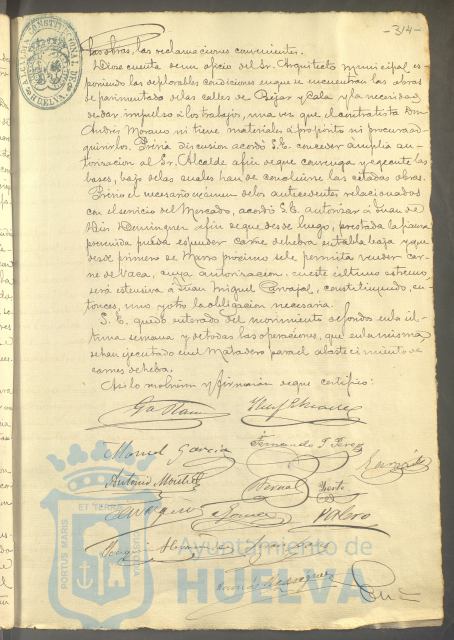 -314-
las obras, las reclamaciones convenientes.
Diose cuenta de un oficio del Sr. Arquitecto municipal, ex-
poniendo las deplorables condiciones en que se encuentran las obras
de pavimentado de las calles de Béjar y Cala y la necesidad
de dar impulso á los trabajos, una vez que el contratista Don
Andrés Morano ni tiene materiales á propósito ni procura ad-
quirirlos. Prévia discusion acordó S.E. conceder amplia au-
torizacion al Sr. Alcalde afin de que convenga y egecute las
bases, bajo de las cuales han de concluirse las citadas obras.
Prévio el necesario exámen de los antecedentes relacionados
con el servicio del Mercado, acordó S.E. autorizar á Juan de
Dios Dominguez afin de que desde luego, prestada la fianza
prevenida pueda espender carne de hebra en tabla baja y que
desde primero de Marzo próximo se le permita vender car-
ne de Vaca, cuya autorizacion en este último estremo,
será estensiva á Juan Miguel Carvajal, constituyendo, en-
tonces, uno y otro la obligacion necesaria.
S.E. quedó enterado del movimiento de fondos en la úl-
tima semana y de todas las operaciones, que en la misma
se han egecutado en el Matadero para el abastecimiento de
carnes de hebra.
Asi lo resolvieron y firmarán de que certifico:
Manuel García
Fernando T. Perez
Antonio
Bernal
ALCALDIA CONSTITUCIONAL DE HUELVA
PORTUS MARIS
ET TERRA
Ayuntamiento de
HUELVA